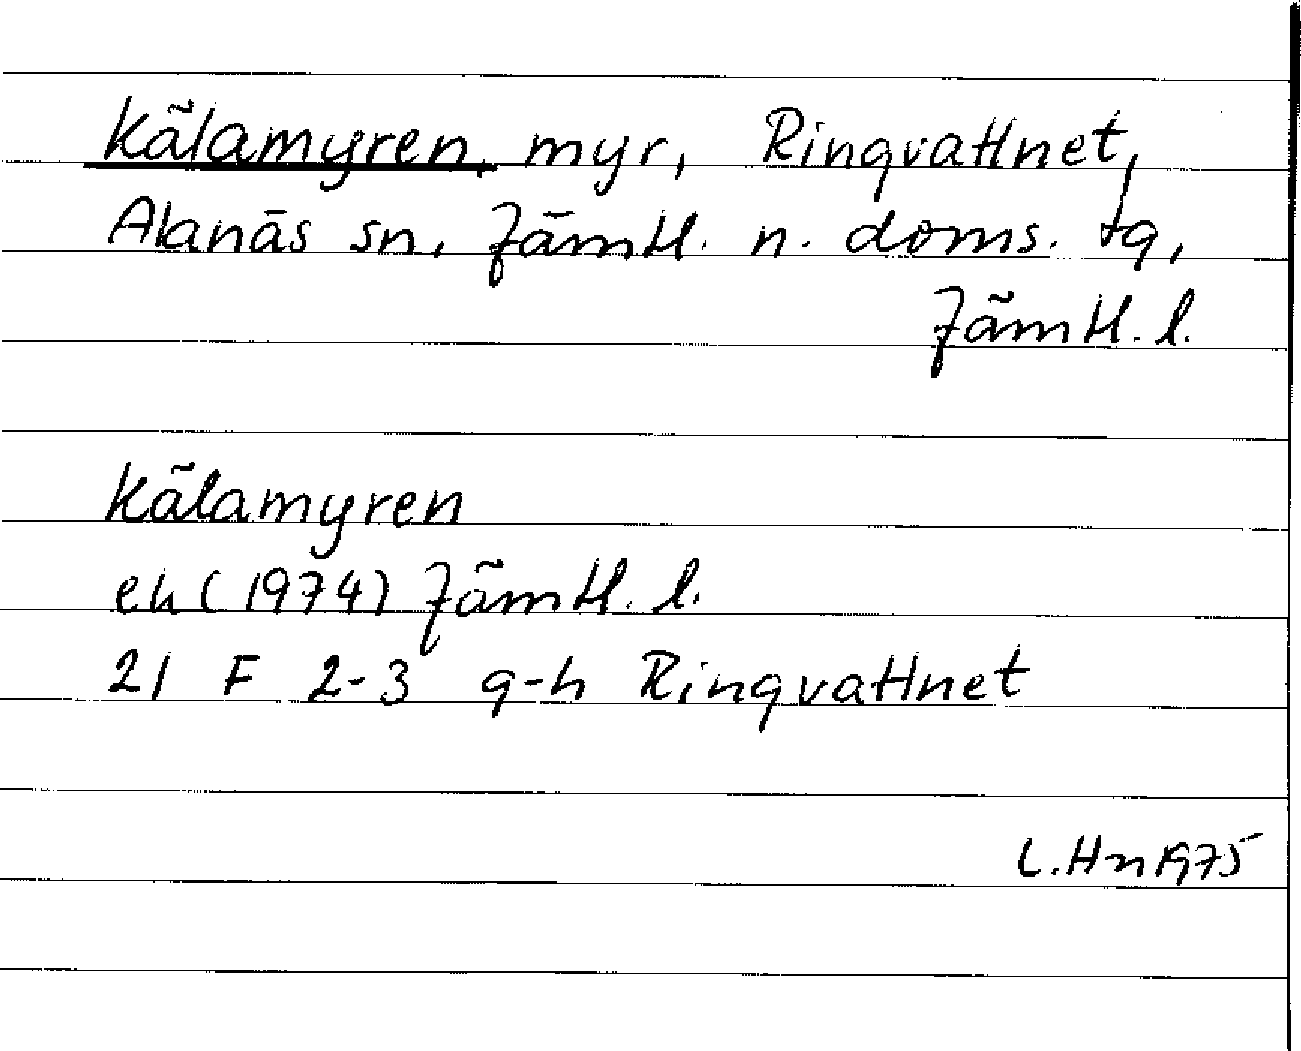 Kälamyren, myr, Ringvattnet,
Alanäs sn, Jämtl. n. doms. tg,
Jämtl. l.
Kälamyren
ek (1974) Jämtl. l.
21 F 2-3 g-h Ringvattnet
L. Hn 1975